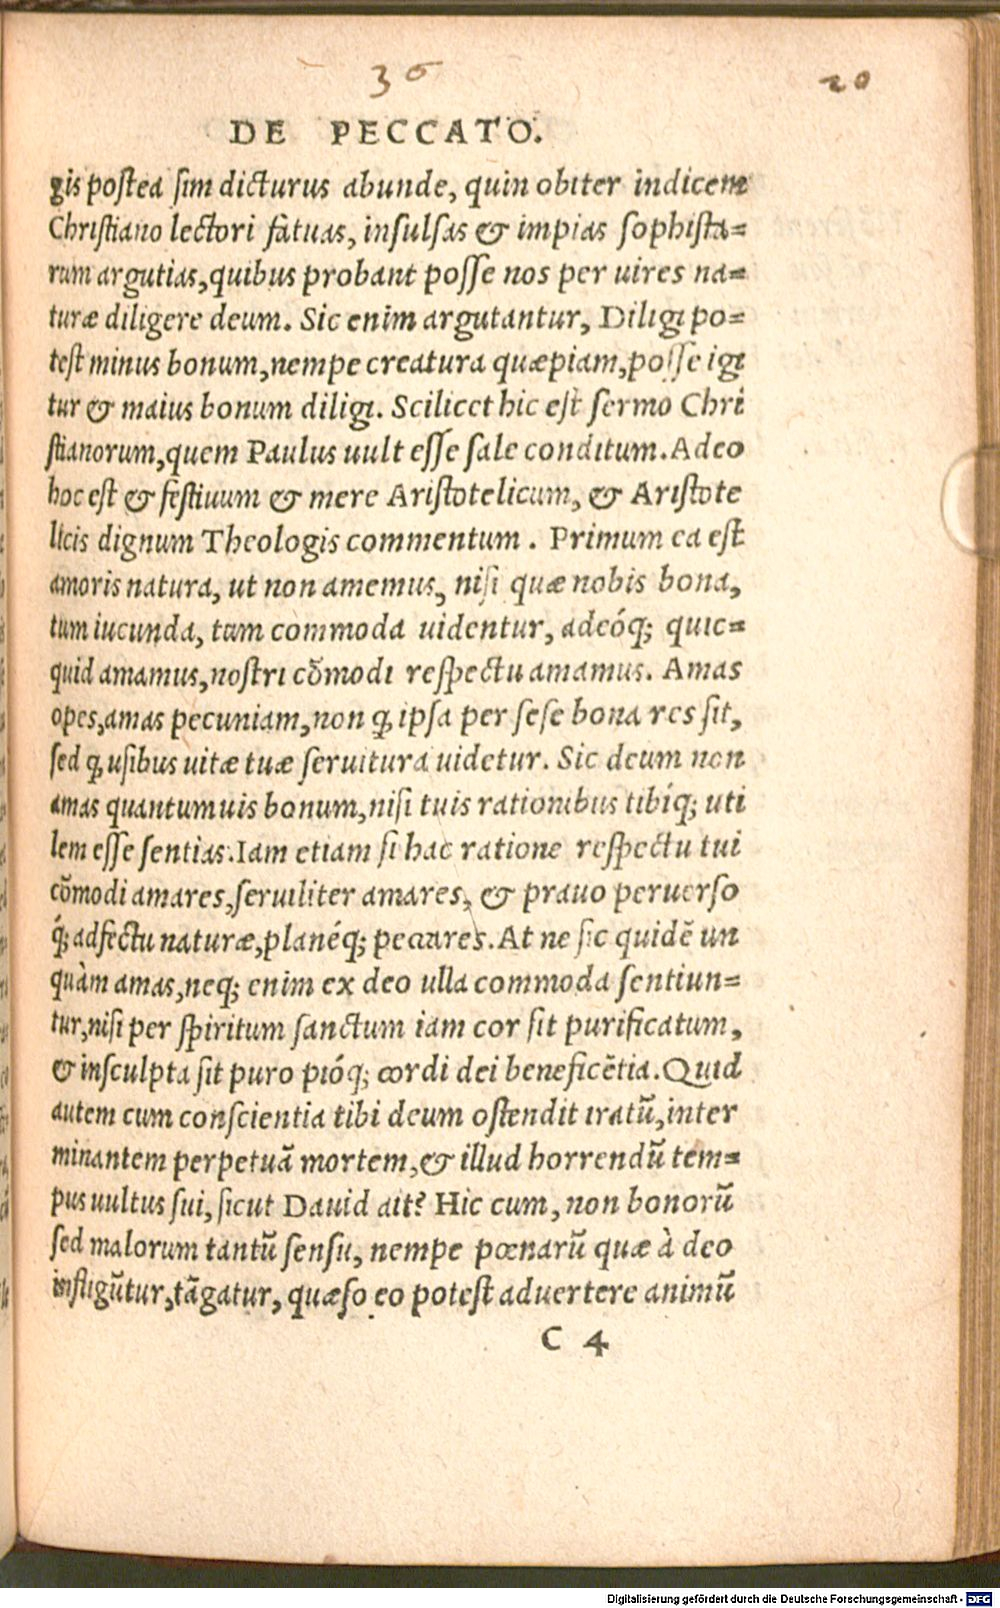 36
20
DE PECCATO.
gis postea sim dicturus abunde, quin obiter indicem
Christiano lectori fatuas, insulsas & impias sophista=
rum argutias, quibus probant posse nos per uires na=
turæ diligere deum. Sic enim argutantur, Diligi po=
test minus bonum, nempe creatura quæpiam, posse igi
tur & maius bonum diligi. Scilicet hic est sermo Chri
stianorum, quem Paulus uult esse sale conditum. Adeo
hoc est & festiuum & mere Aristotelicum, & Aristote
licis dignum Theologis commentum. Primum ea est
amoris natura, ut non amemus, nisi quæ nobis bona,
tum iucunda, tum commoda uidentur, adeóq; quic=
quid amamus, nostri cōmodi respectu amamus. Amas
opes, amas pecuniam, non ꝙ ipsa per sese bona res sit,
sed ꝙ usibus uitæ tuæ seruitura uidetur. Sic deum non
amas quantumuis bonum, nisi tuis rationibus tibíq; uti
lem esse sentias. Iam etiam si hac ratione respectu tui
cōmodi amares, seruiliter amares, & prauo peruerso
q́; adfectu naturæ, planéq; peccares. At ne sic quidē un
quàm amas, neq; enim ex deo ulla commoda sentiun=
tur, nisi per spiritum sanctum iam cor sit purificatum,
& insculpta sit puro pióq; cordi dei beneficētia. Quid
autem cum conscientia tibi deum ostendit iratū, inter
minantem perpetuā mortem, & illud horrendū tem=
pus uultus sui, sicut Dauid ait? Hic cum, non bonorū
sed malorum tantū sensu, nempe pœnarū quæ à deo
infligūtur, tāgatur, quæso eo potest aduertere animū
C 4
Digitalisierung gefördert durch die Deutsche Forschungsgemeinschaft - DFG